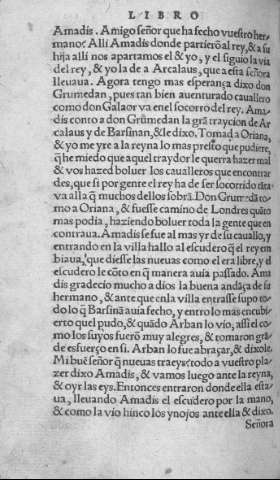 LIBRO
Amadis. Amigo señor que ha fecho vuestro her-
mano? Alli Amadis donde partierõ al rey, & a su
hija alli nos apartamos el & yo, y el siguio la via
del rey, & yo la de a Arcalaus, que a esta señora
lleuaua. Agora tengo mas esperança dixo don
Grumedan, pues tan bien auenturado cauallero
como don Galaor va en el socorro del rey. Ama-
dis conto a don Grũmedan la grã trayciõn de Ar
calaus y de Barsinan, & le dixo. Tomad a Oriana,
& yo me yre a la reyna lo mas presto que pudiere,
q̃ he miedo que aquel traydor le querra hazer mal
& vos hazed boluer los caualleros que encontrar
des, que si por gente el rey ha de ser socorrido tãta
va alla q̃ muchos dellos sobrã. Don Grumedã to-
mo a Oriana, & fuesse camino de Londres quãto
mas podia, haziendo boluer toda la gente que en
contraua. Amadis se fue al mas yr de su cauallo, y
entrando en la villa hallo al escudero q̃ el rey em
biaua, que diesse las nueuas como el era libre, y el
escudero le cõto en q̃ manera auia passado. Ama
dis gradecio mucho a dios la buena andãça de su
hermano, & ante que en la villa entrasse supo to
do lo q̃ Barsinã auia fecho, y entro lo mas encubi-
erto quel pudo, & quãdo Arban lo vio, assi el co
mo los suyos fuerõ muy alegres, & tomaron grã
de esfuerço en si. Arban lo fue abraçar, & dixole.
Mi buẽ señor q̃ nueuas traeys: todo a vuestro pla-
zer dixo Amadis, & vamos luego ante la reyna,
& oyr las eys. Entonces entraron donde ella esta-
ua, lleuando Amadis el escudero por la mano,
& como la vio hinco los ynojos ante ella & dixo.
Señora